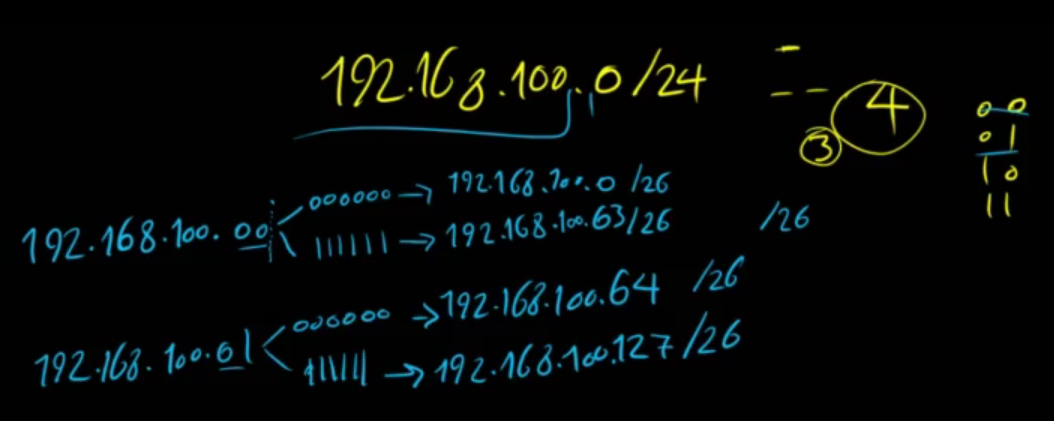 192.168.100.0/24
4
3
00
01
10
11
192.168.100.00
000000 → 192.168.100.0 /26
111111 → 192.168.100.63/26
/26
192.168.100.01
000000 → 192.168.100.64 /26
111111 → 192.168.100.127/26